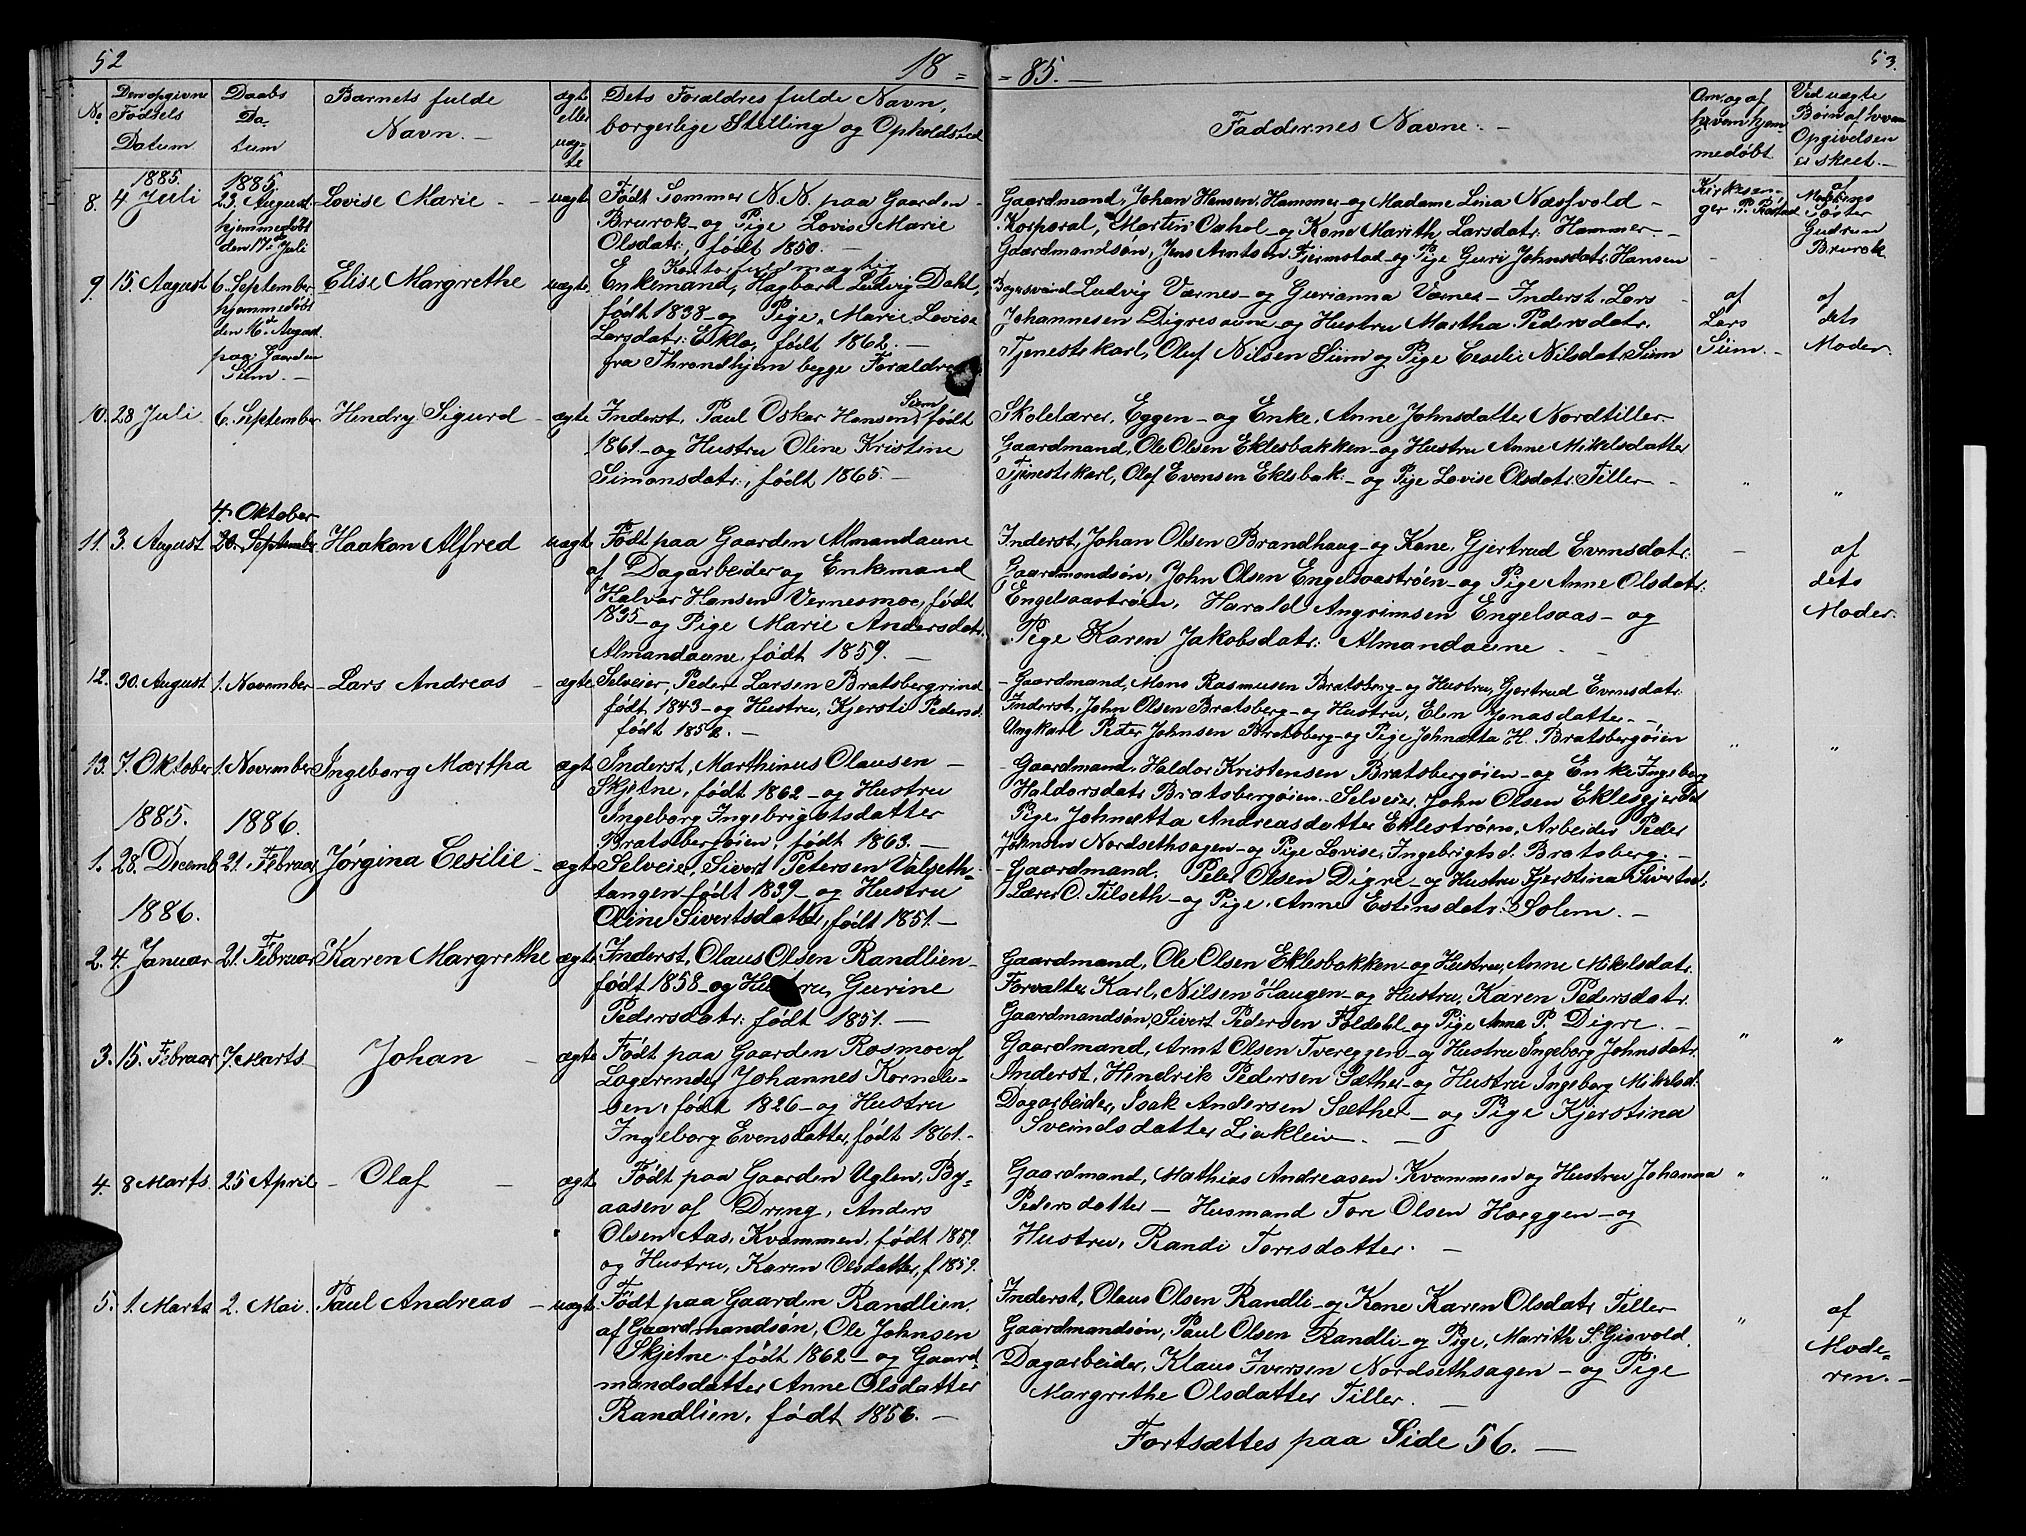 52
18 = = 85. —
53.
No
Den opgivne
Fødsels
Datum
Daabs
Da-
tum
Barnets fulde
Navn. —
ægte
eller
uæg-
te
Dets Forældres fulde Navn,
borgerlige Stilling og Opholdsted
Faddernes Navne: —
Om og af
hvem hjem-
medøbt
Ved uægte
Børn af hvem
Opgivelsen
er skeet. —
1885.
8. 4 Juli
1885
23. August
hjemmedøbt
den 17. Juli
Lovise Marie —
uægt
Født Sommer N.N. paa Gaarden
Brurok og Pige Lovise Marie
Olsdatr. født 1850. —
Gaardmand, Johan Hansen, Hammer og Madame Lina Næsfvold —
Korporal, Martin Oxhol og Kone Marith Larsdatr. Hammer. —
Gaardmandsøn, Jens Arntsen Fjermstad og Pige Guri Johnsdatr. Hansen
Kirkesan-
ger P. Røstad
af
Moderens
Søster
Gudrun
Brurok
9. 15. August
6. September
hjemmedøbt
den 16. August
paa Gaarden
Sium. —
Elise Margrethe
uægte
Kontorfuldmægtig
Enkemand, Hagbart Ludvig Dahl,
født 1838 og Pige, Marie Lovise
Larsdatr. Eklo, født 1862. —
fra Throndhjem begge Forældre
Ludvig Værnes og Gurianna Værnes — Inderst Lars
Johannesen Digresaune og Hustru Martha Pedersdatr.
Tjenestekarl, Oluf Nilsen Sium og Pige Cesilie Nilsdatr. Sium
af
Lars
Sium. —
af
dets
Moder.
10. 28 Juli
6. September
Hendry Sigurd
ægte
Inderst, Paul Oskar Hansen Sium, født
1861 og Hustru Oline Kristine
Simonsdatr., født 1865. —
Skolelærer, Eggen og Enke, Anne Johnsdatter Nordtiller
Gaardmand, Ole Olsen Eklesbakken og Hustru Anne Mikelsdatter
Tjenestekarl, Olef Evensen Eklesbak. og Pige Lovise Olsdatr. Tiller —
"
"
11. 3. August
4. Oktober
20. September
Haakon Alfred
uægt
Født paa Gaarden Almandaune
af Dagarbeider og Enkemand
Halvar Hansen Vernesmoe, født
1835 og Pige Marie Andersdatr.
Almandaune, født 1859. —
Inderst, Johan Olsen Brandhaug og Kone, Gjertrud Evensdatr.
Gaardmandsøn, John Olsen Engelsaastrøen og Pige Anne Olsdatr.
Engelsaastrøen, Harald Angrimsen Engelsaas og
Pige Karen Jakobsdatr. Almandaune —
—
af
dets
Moder.
12. 30. August
1. November
Lars Andreas
ægte
Selveier, Peder Larsen Bratsbergrind
født 1843 og Hustru, Kjersti Pedersd.
født 1852. —
Gaardmand, Mons Rasmusen Bratsberg og Hustru, Gjertrud Evensdatr.
Inderst, John Olsen Bratsberg og Hustru, Elen Jonasdatter. —
Ungkarl Peder Johnsen Bratsberg og Pige Johnætta H. Bratsbergøien
"
"
13. 7. Oktober
1. November
Ingeborg Martha
ægt
Inderst, Marthinus Olausen —
Skjetne, født 1862 og Hustru
Ingeborg Ingebrigtsdatter
Bratsbergøien, født 1863. —
Gaardmand, Haldor Kristensen Bratsbergøien og Enke Ingeborg
Haldorsdatr. Bratsbergøien. Selveier, John Olsen Eklesejerdet
Pige, Johnætta Andreasdatter Eklestrøm, Arbeider Peder
Johnsen Nordsethsagen og Pige Lovise, Ingebrigtsd. Bratsberg. —
1885.
1886.
1. 28. Decemb
21. Februar
Jørgina Cesilie
ægte
Selveier, Sivert Petersen Valseth-
tangen født 1839 og Hustru
Oline Sivertsdatter, født 1851. —
Gaardmand, Peter Olsen Digre og Hustru Kjerstina Sivertsd.
Lærer O. Tilseth og Pige, Anne Estensdatr. Solem. —
1886.
2. 4. Januar
21. Februar
Karen Margrethe
ægte
Inderst, Olaus Olsen Randlien
født 1858 og Hustru, Gurine
Pedersdatr. født 1851. —
Gaardmand, Ole Olsen Eklesbakken og Hustru, Anne Mikelsdatr.
Forvalter Karl, Nilsen Haugen og Hustru, Karen Pedersdatr.
Gaardmandsøn, Sivert Pedersen Foldahl og Pige Anna P. Digre. —
3. 15. Februar
7. Marts
Johan —
ægte
Født paa Gaarden Rosmoe af
Logerende, Johannes Korneliu-
sen, født 1826 og Hustru
Ingeborg Evensdatter, født 1861. —
Gaardmand, Arnt Olsen Tvereggen og Hustru Ingeborg Johnsdatr.
Inderst, Hendrik Pedersen Sæther og Hustru Ingeborg Mikelsd.
Dagarbeider, Isak Andersen Sæther — og Pige Kjerstina
Sveindsdatter Liakleiv. —
"
"
4. 8 Marts
25 April
— Olaf —
ægt
Født paa Gaarden Uglen, By-
aasen af Dreng, Anders
Olsen Aas, Kvammen, født 1859
og Hustru, Karen Olsdatter, f. 1859.
Gaardmand, Mathias Andreasen Kvammen og Hustru Johanna
Pedersdatter — Husmand Tore Olsen Hoeggen og
Hustru, Randi Toresdatter. —
"
"
5. 1. Marts
2. Mai
Paul Andreas
uægt
Født paa Gaarden Randlien,
af Gaardmandsøn, Ole Johnsen
Skjetne født 1862 — og Gaard-
mandsdatter Anne Olsdatter
Randlien, født 1856. —
Inderst, Olaus Olsen Randli og Kone Karen Olsdatr. Tiller
Gaardmandsøn, Paul Olsen Randli og Pige, Marith S. Gisvold.
Dagarbeider, Klaus Iversen Nordsethsagen — og Pige
Margrethe Olsdatter Tiller. —
"
af
Mode-
ren. —
Fortsættes paa Side 56. —